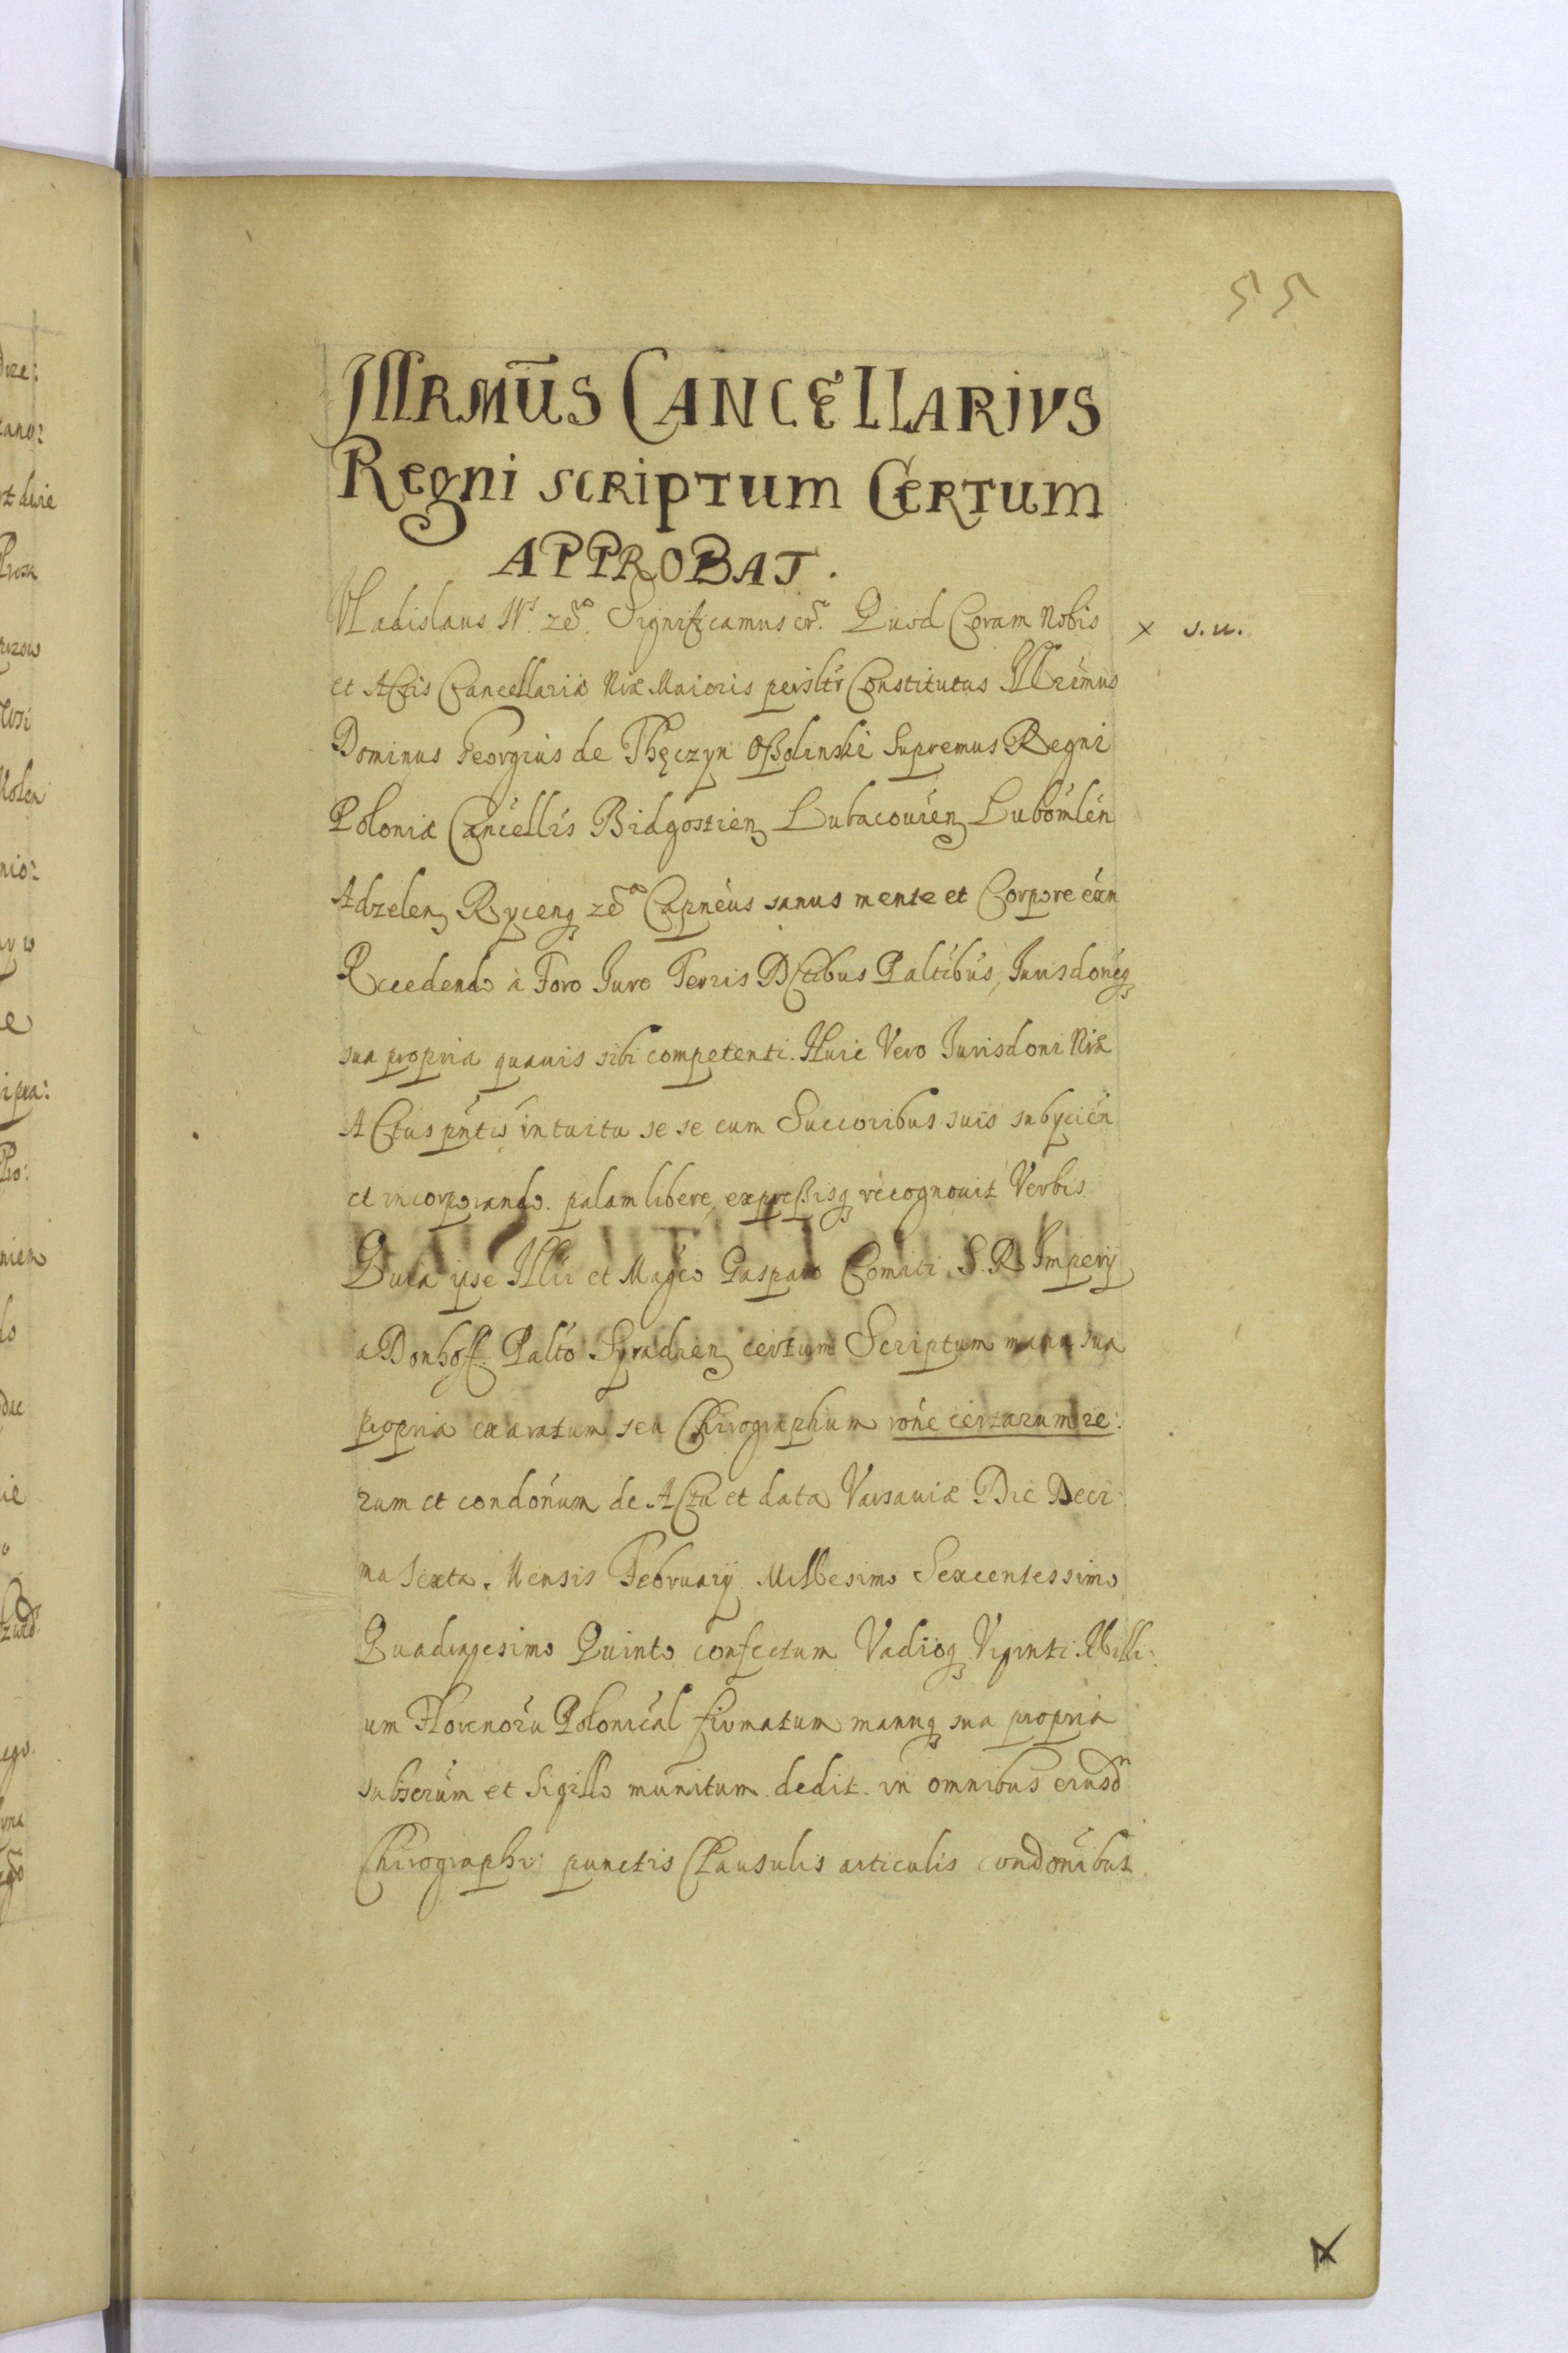 55
Jllrmūs Cancellarius
Regni scriptum Certum
approbat.
Vladislaus IVs. zc̃a. Significamus cr̃. Quod Coram Nobis
x s. u.
et Actis Cancellariæ Nræ Maioris persltr Constitutus Illremus
Dominus Georgius de Thęczyn Oßolinski Supremus Regni
Poloniæ Cancellrs Bidgostien Lubacouien Lubomlen
Adzelen Ryceng zc̃a Capneus sanus mente et Corpore exn
Recedendo à Foro Jure Terris Dctibus Paltibus, Jurisdoneq
sua propria quauis sibi competenti. Huic Vero Jurisdoni Nræ
Actus pntis intuitu se se cum Succoribus suis subycien
et incorporando. palam libere expreßisq recognouit Verbis
Quia ipse Illri et Magco Gasparo Comiti S. R Imperij
a Donhoff. Palto Syradien certum Scriptum manu sua
propria exaratum seu Chirographum rone certarum re:
rum et condonum de Actu et data Varsauiæ Die Deci
ma Sexta. Mensis February Millesimo Sexcentessimo
Quadragesimo Quinto confectum Vadioq Viginti Milli:
um Florenoru Polonical firmatum manuq sua propria
subscrum et Sigillo munitum dedit. in omnibus eiusdn
Chirographi punctis Clausulis articulis condonibus